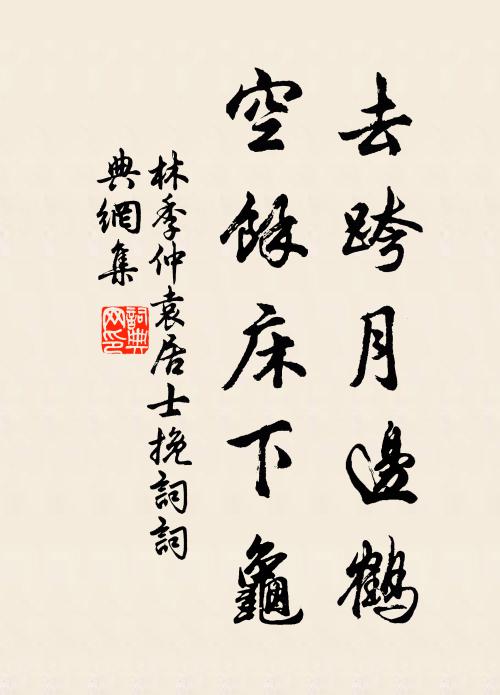 去跨月邊鶴
空餘床下龜
林季仲袁居士挽詞詞
典網集
詞典
网印